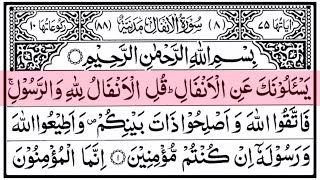 اٰيَاتُهَا ٧٥ (٨) سُوْرَةُ الْاَنْفَالِ مَدَنِيَّةٌ (٨٨) رُكُوْعَاتُهَا ١٠
بِسْمِ اللّٰهِ الرَّحْمٰنِ الرَّحِيْمِ
يَسْـَٔلُوْنَكَ عَنِ الْاَنْفَالِ ؕ قُلِ الْاَنْفَالُ لِلّٰهِ وَالرَّسُوْلِ ۚ
فَاتَّقُوا اللّٰهَ وَاَصْلِحُوْا ذَاتَ بَيْنِكُمْ ۪ وَاَطِيْعُوا اللّٰهَ
وَرَسُوْلَهٗۤ اِنْ كُنْتُمْ مُّؤْمِنِيْنَ ۝١ اِنَّمَا الْمُؤْمِنُوْنَ